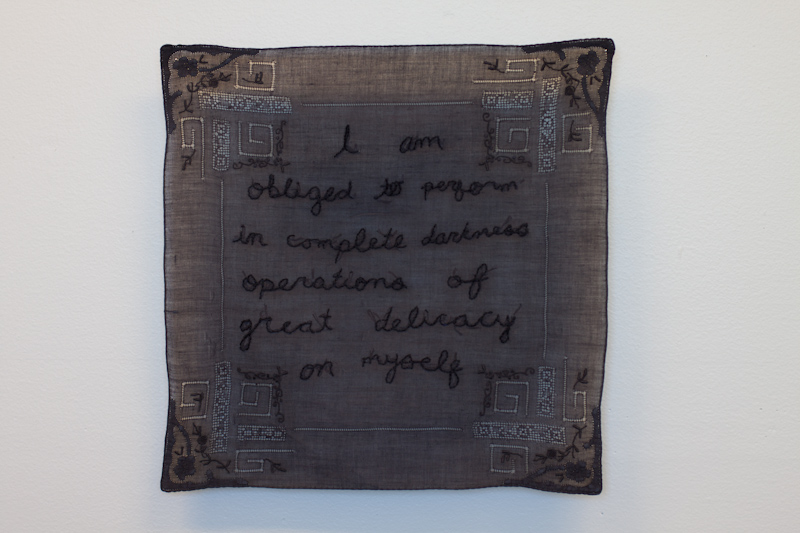 I am
obliged to perform
in complete darkness
operations of
great delicacy
on myself